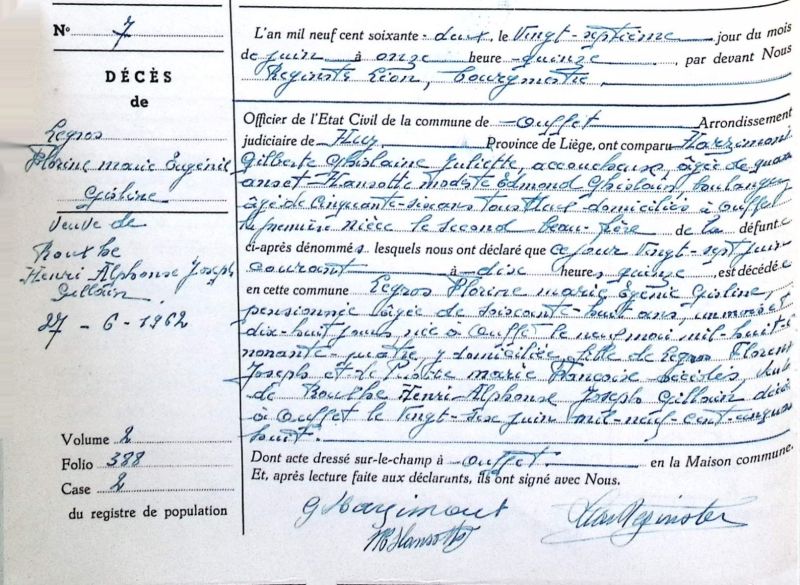 N° 7
DÉCÈS
de
Legros
Florine Marie Eugénie
Gisline
Veuve de
Bouxhe
Henri Alphonse Joseph
Gillain.
27 - 6 - 1962
Volume 2
Folio 388
Case 2
du registre de population
L'an mil neuf cent soixante-deux, le Vingt-septième jour du mois
de juin à onze heure quinze, par devant Nous
Reginster Léon, bourgmestre,
Officier de l'Etat Civil de la commune de Ouffet Arrondissement
judiciaire de Huy Province de Liège, ont comparu
Gilberte Ghislaine Juliette, accoucheuse, âgée de
ans et Hansotte Modeste Edmond Ghislain, boulanger
âgé de Cinquante-six ans tous deux domiciliés à Ouffet
la première nièce le second beau-frère de la défunte
ci-après dénommés. lesquels nous ont déclaré que ce jour Vingt-sept juin
courant à dix heures quinze, est décédée
en cette commune Legros Florine Marie Egénie Gisline,
pensionnée âgée de soixante-huit ans, un mois et
dix-huit jours, née à Ouffet le neuf mai mil huit c
nonante-quatre, y domiciliée, fille de Legros Florent
Joseph et de Marie Françoise décédés,
de Bouxhe Henri-Alphonse Joseph Gillain décé
à Ouffet le Vingt-six juin mil neuf cent cinquan
huit.
Dont acte dressé sur-le-champ à Ouffet. en la Maison commune.
Et, après lecture faite aux déclarants, ils ont signé avec Nous.
M Hansotte
Léon Reginster